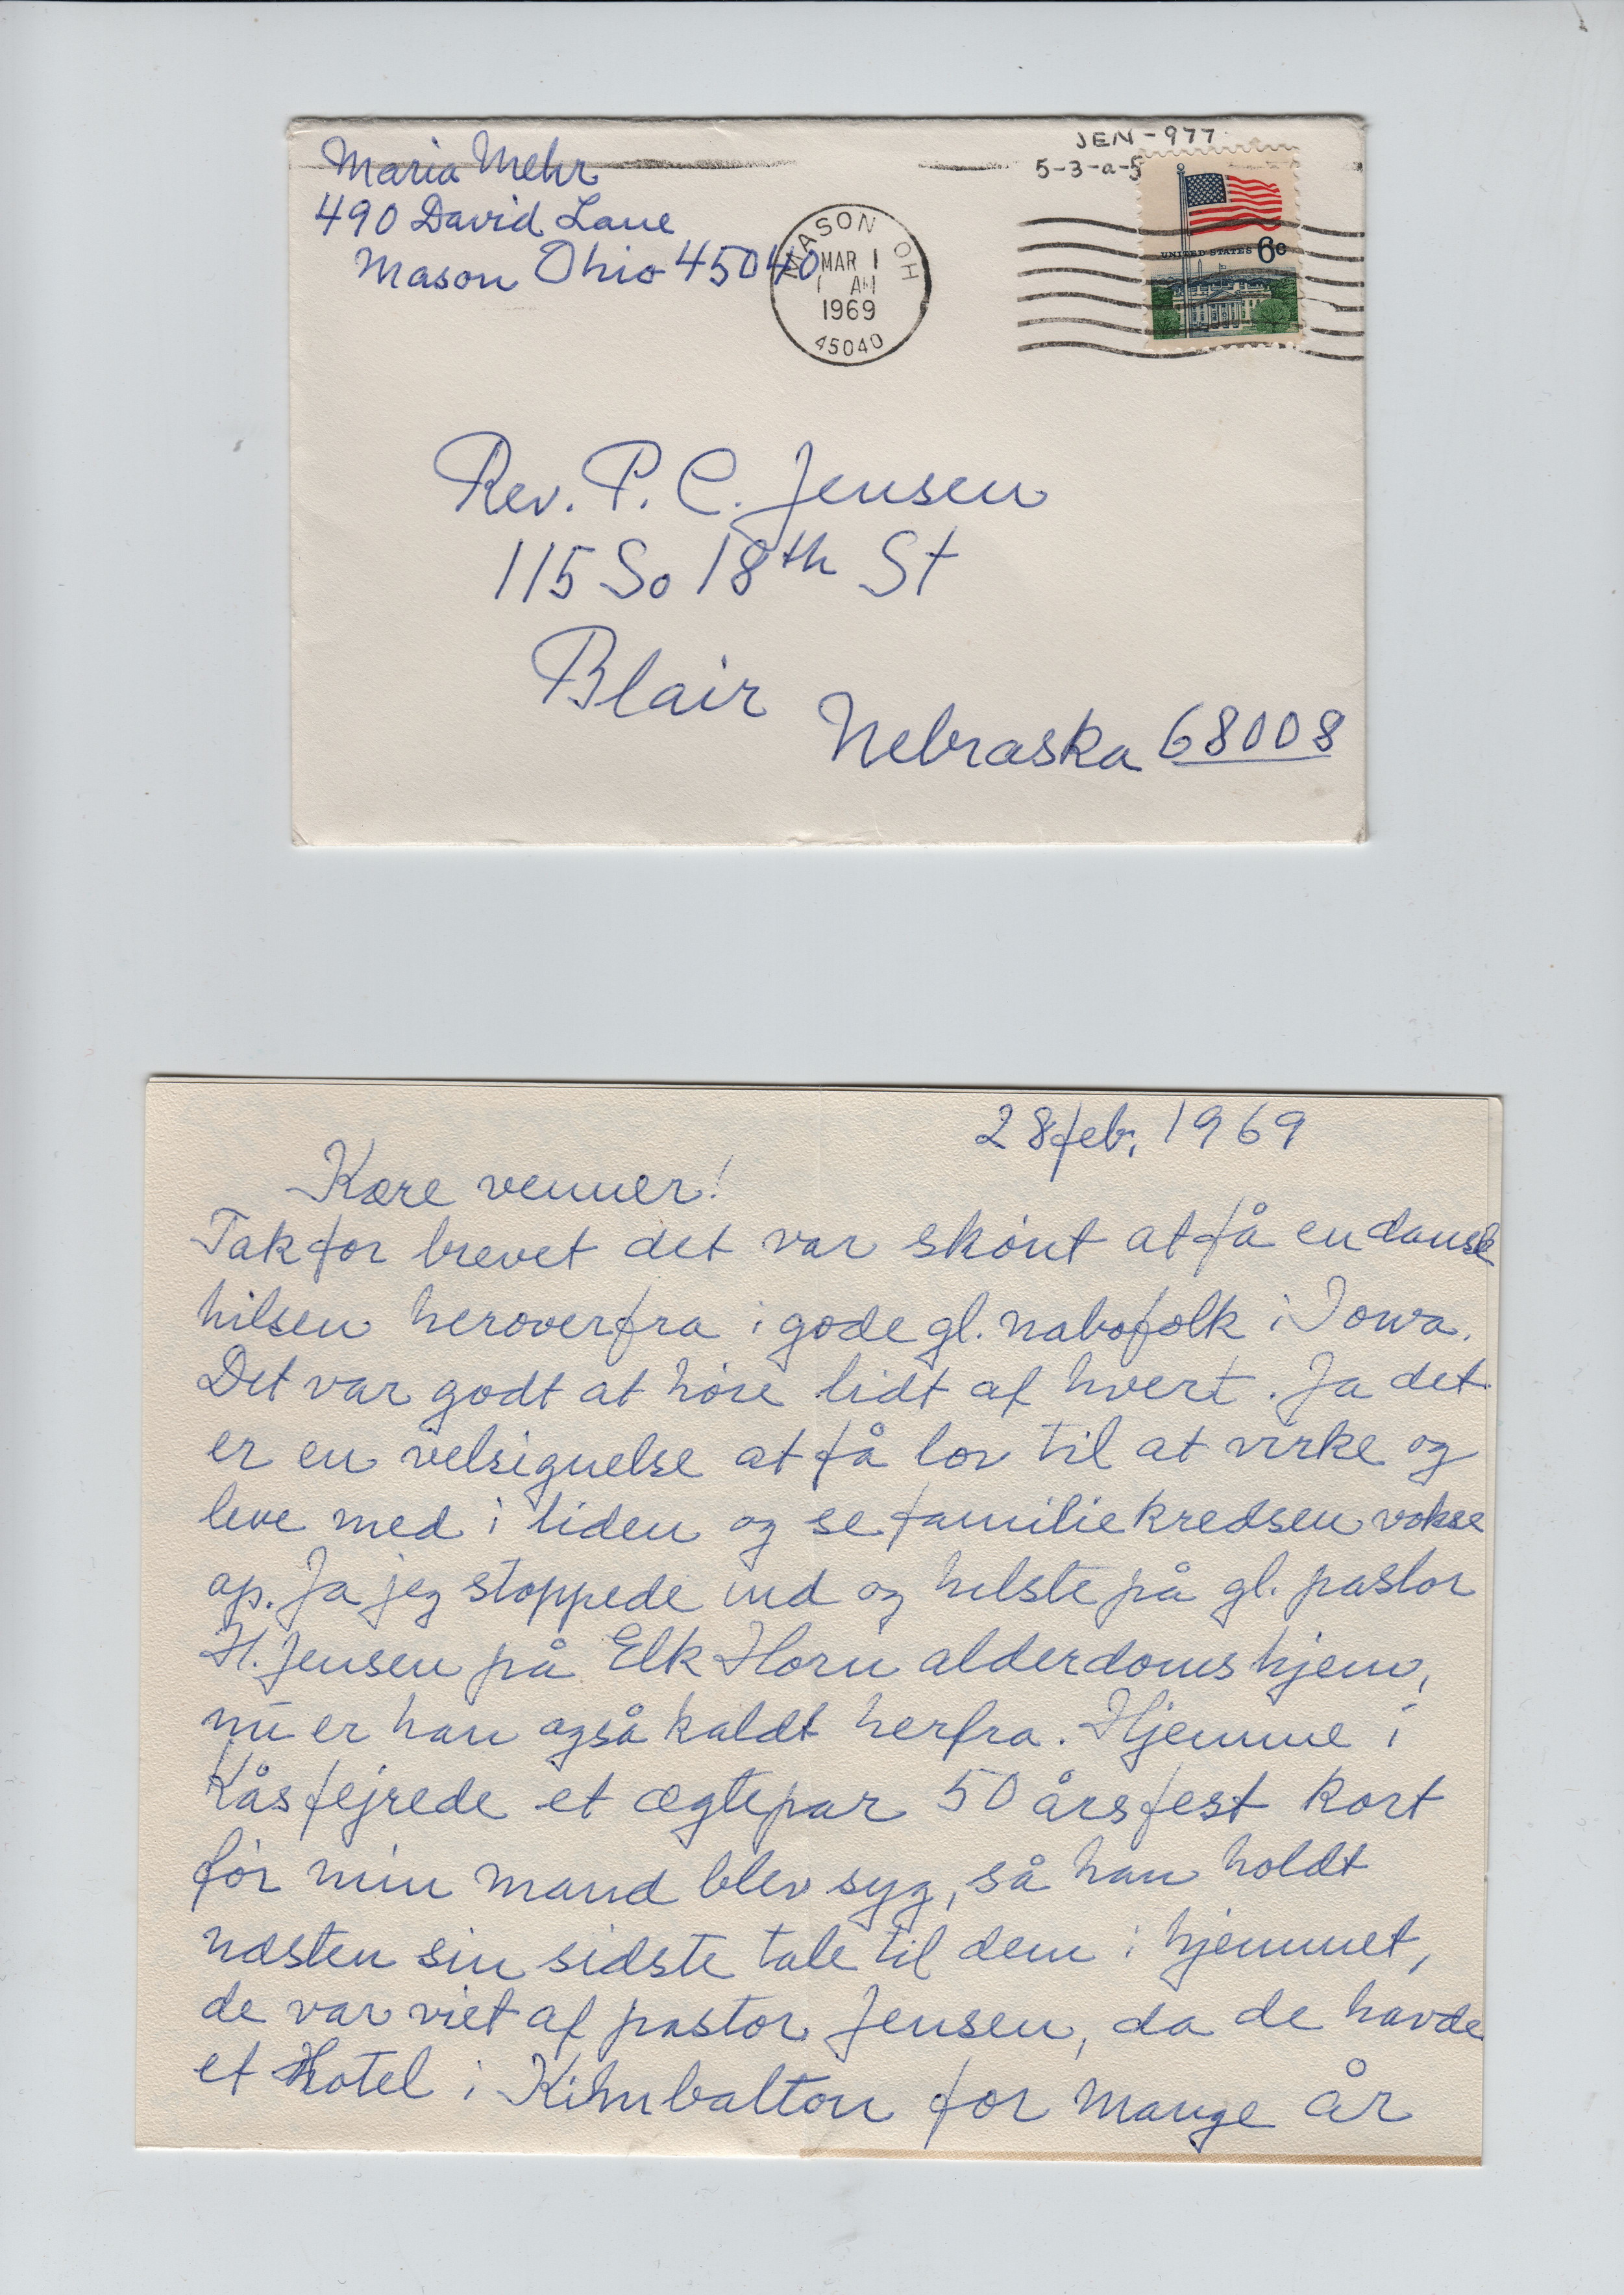 Maria Mehr
490 David Lane
Mason Ohio 45040
JEN-977
5-3-a-5
MASON OH
MAR 1
1 AM
1969
45040
UNITED STATES 6c
Rev. P. C. Jensen
115 So 18th St
Blair
Nebraska 68008
28 feb, 1969
Kære venner!
Tak for brevet det var skønt at få en dansk
hilsen heroverfra i gode gl. nabofolk i Iowa.
Det var godt at høre lidt af hvert. Ja det
er en velsignelse at få lov til at virke og
leve med i tiden og se familiekredsen vokse
op. Ja jeg stoppede ind og hilste på gl. pastor
H. Jensen på Elk Horn alderdomshjem,
nu er han også kaldt herfra. Hjemme i
Kås fejrede et ægtepar 50 årsfest kort
før min mand blev syg, så han holdt
næsten sin sidste tale til dem i hjemmet,
de var viet af pastor Jensen, da de havde
et Hotel i Kimbalton for mange år